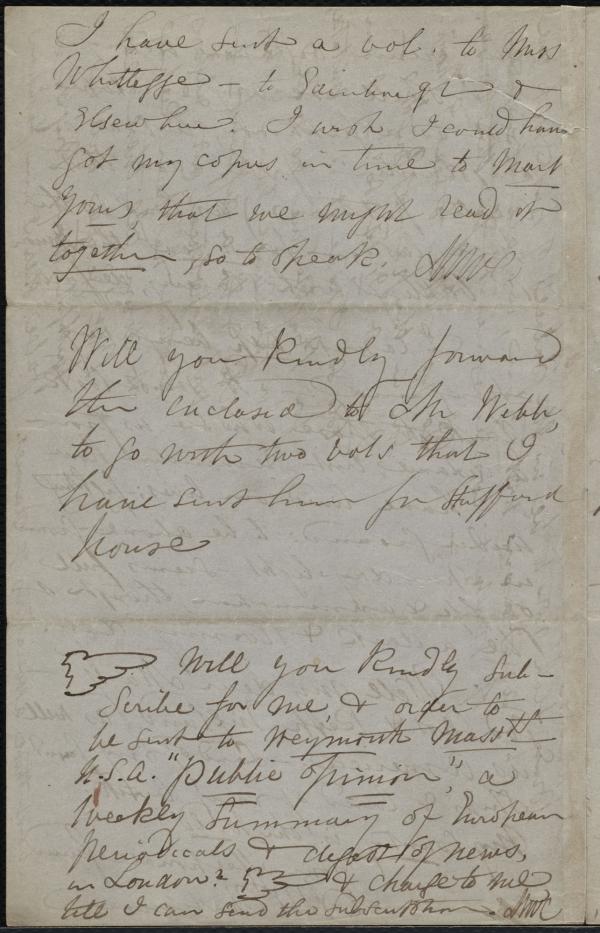 I have sent a vol. to Miss
Whitlegge - to Edinburgh &
Elsewhere. I wish I could have
got my copies in time to Mark
Yours, that we might read it
together, so to speak. MWC
Will you kindly forward
the enclosed to Mr Webb,
to go with two vols that I
have sent him for Stafford
House
Will you kindly sub-
scribe for me & order to
be sent to Weymouth Masstts
U.S.A. "Public Opinion", a
Weekly Summary of European
periodicals & digest of news,
in London? & charge to me
till I can send the subscription. MWC